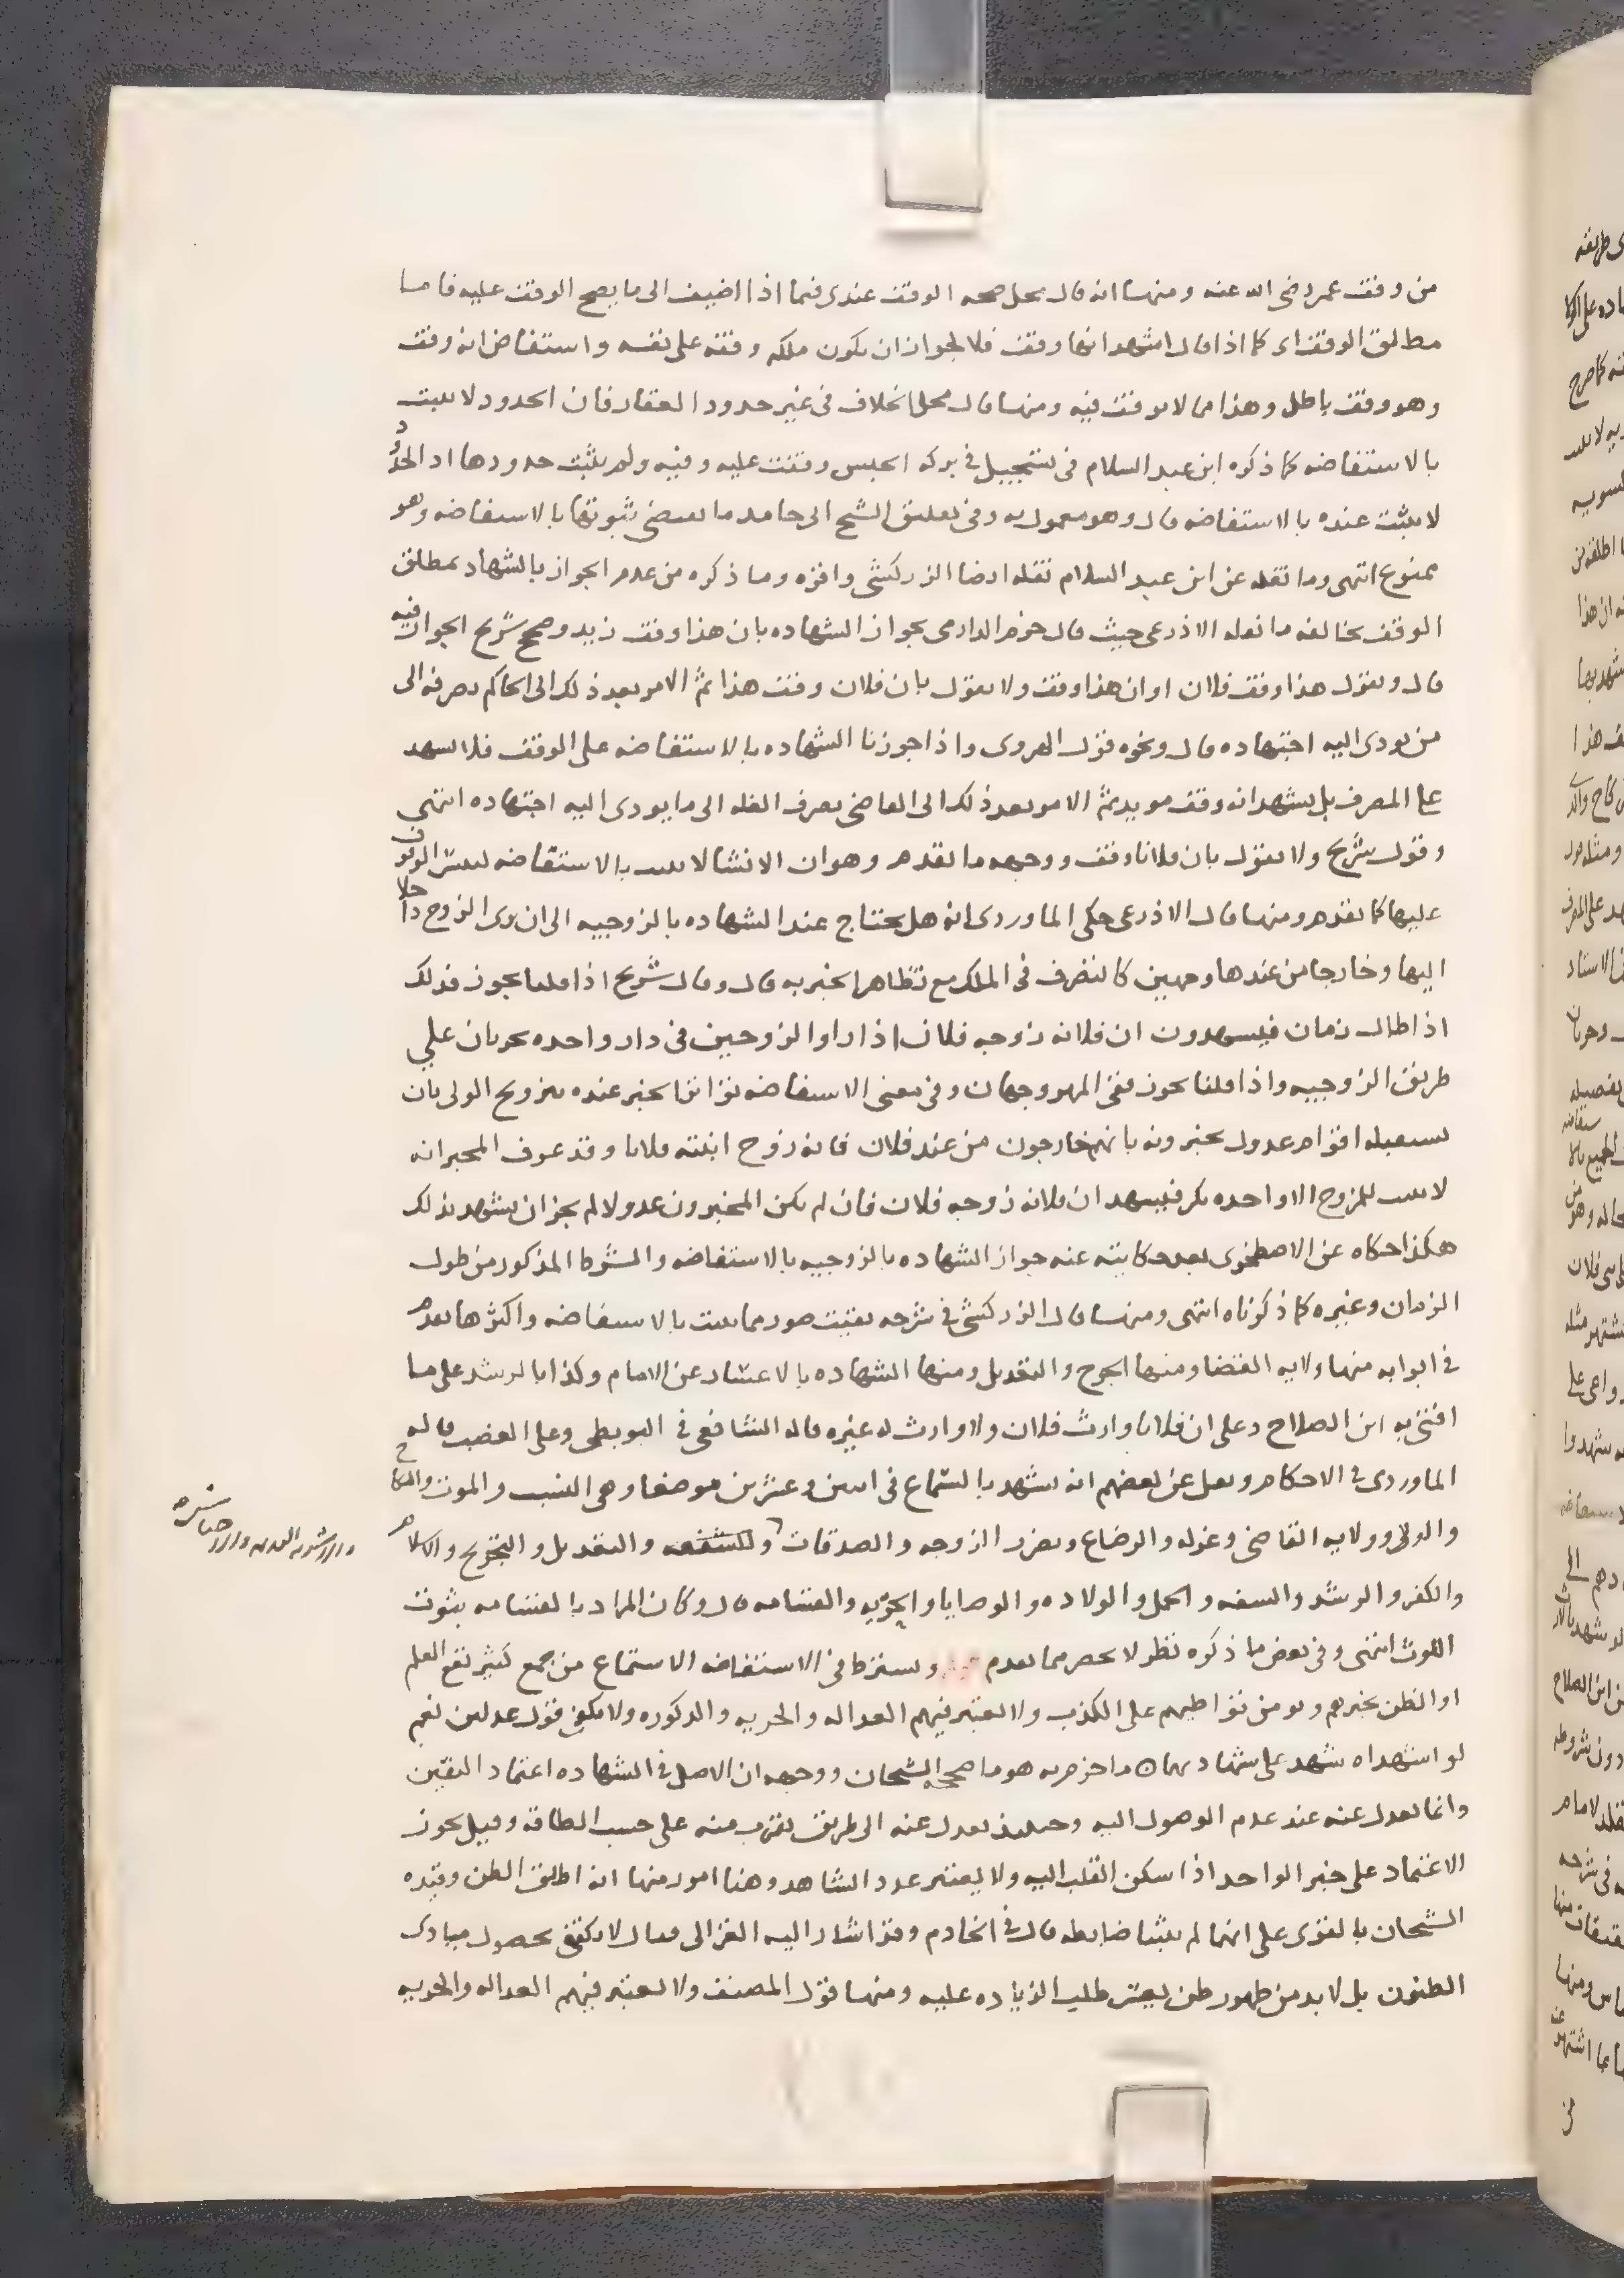 من وقف عمر رضي الله عنه ومنها انه قال محل صحه الوقف عندي فيما اذا اضيف الى ما يصح الوقف عليه فاما
مطلق الوقف اي كما اذا قال اشهد انها وقف فلا لجواز ان يكون ملكه وقفه على نفسه واستفاض انه وقف
وهو وقف باطل وهذا مما لا يوقف فيه ومنها قال محل الخلاف في غير حدود العقار فان الحدود لا تثبت
بالاستفاضه كما ذكره ابن عبد السلام في بركه الحبس وقفت عليه وفيه ولم يثبت حدودها اذ الحدود
لا تثبت عنده بالاستفاضه قال وهو معمول به وفي تعليق الشيخ ابي حامد ما يقتضي ثبوتها بالاستفاضه وهو
ممنوع انتهى وما نقله عن ابن عبد السلام نقله ايضا الزركشي واقره وما ذكره من عدم الجواز بالشهاد بمطلق
الوقف يخالفه ما نقله الاذرعي حيث قال جزم الدارمي بجواز الشهاده بان هذا وقف زيد وصحح شريح الجواز فيه
قال ويقول هذا وقف فلان او ان هذا وقف ولا يقول بان فلان وقف هذا ثم الامر بعد ذلك الى الحاكم يصرفه الى
من يودي اليه اجتهاده قال ونحوه قول الهروي واذا جوزنا الشهاده بالاستفاضه على الوقف فلا يشهد
على المصرف بل يشهد انه وقف موبد ثم الامر بعد ذلك الى القاضي يصرف الغله الى ما يودي اليه اجتهاده انتهى
وقول شريح ولا يقول بان فلانا وقف ووجهه ما تقدم وهو ان الانشا لا يثبت بالاستفاضه ليسر الوقوف
عليها كما تقدم ومنها قال الاذرعي حكى الماوردي انه هل يحتاج عند الشهاده بالزوجيه الى ان يرى الزوج داخلا
اليها وخارجا من عندها وجهين كالتصرف في الملك مع تظاهر الخبر به قال وقال شريح اذا قلنا يجوز فذلك
اذا طال زمان فيشهدون ان فلانه زوجه فلان اذا راوا الزوجين في دار واحده يجريان على
طريق الزوجيه واذا قلنا يجوز ففي المهر وجهان وفي معنى الاستفاضه تواترا يخبر عنده بتزويج الولي بان
يستقبله اقوام عدول يخبرونه بانهم خارجون من عند فلان فانه زوج ابنته فلانا وقد عرف المخبر انه
لا بنت للمزوج الا واحده بكر فيشهد ان فلانه زوجه فلان فان لم يكن المخبرون عدولا لم يجز ان يشهد بذلك
هكذا حكاه عن الاصطخري بعد حكايته عنه جواز الشهاده بالزوجيه بالاستفاضه والشرط المذكور من طول
الزمان وغيره كما ذكرناه انتهى ومنها قال الزركشي في شرحه بقيت صور مما يثبت بالاستفاضه واكثرها تقدم
في ابوابه منها ولايه القضا ومنها الجرح والتعديل ومنها الشهاده بالاعسار عن الامام وكذا بالرشد على ما
افتى به ابن الصلاح وعلى ان فلانا وارث فلان ولا وارث له غيره قاله الشافعي في البويطي وعلى الغصب قاله
الماوردي في الاحكام ونقل عن بعضهم انه يشهد بالسماع في اثنين وعشرين موضعا وهي النسب والموت والنكاح
والولا وولايه القاضي وعزله والرضاع وتضرر الزوجه والصدقات والتعديل والتجريح والاسلام
والكفر والرشد والسفه والحمل والولاده والوصايا والحريه والقسامه قال وكان المراد بالقسامه ثبوت
اللوث انتهى وفي بعض ما ذكره نظر لا يحصر مما تقدم ويشترط في الاستفاضه الاستماع من جمع كثير تقع العلم
او الظن بخبرهم ويومن تواطيهم على الكذب ولا يعتبر فيهم العداله والحريه والذكوره ولا يكفي قول عدلين نعم
لو اشهداه شهد على شهادتهما ما جزم به هو ما صححه الشيخان ووجهه ان الاصل في الشهاده اعتماد اليقين
وانما يعدل عنه عند عدم الوصول اليه وحينئذ يعدل عنه الى طريق يقرب منه على حسب الطاقه وقيل يجوز
الاعتماد على خبر الواحد اذا سكن القلب اليه ولا يعتبر عدد الشاهد وهنا امور منها انه اطلق الظن وقيده
الشيخان بالقوي على انهما لم يثبتا ضابطه قال في الخادم وقد اشار اليه الغزالي فقال لا يكتفى بحصول مبادي
الظنون بل لا بد من ظهور ظن يعسر طلب الزياده عليه ومنها قول المصنف ولا يعتبر فيهم العداله والحريه